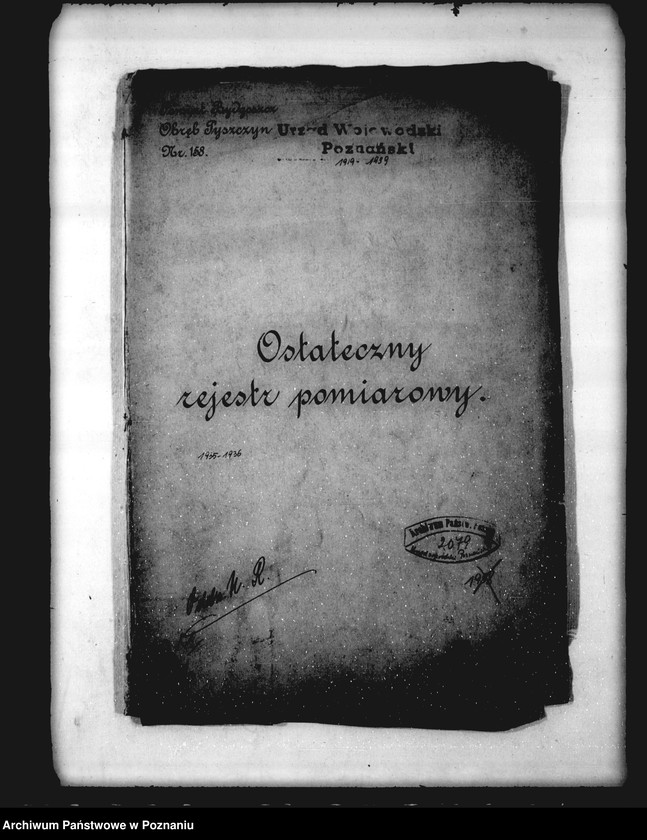 Powiat Bydgoszcz
Obręb Tyszczyn
Nr. 158.
Urząd Wojewodski
Poznański
1919 - 1939
Ostateczny
rejestr pomiarowy.
1935-1936
N. R.
Archiwum Państw. Pozna
2079
Archiwum Państwowe w Poznaniu